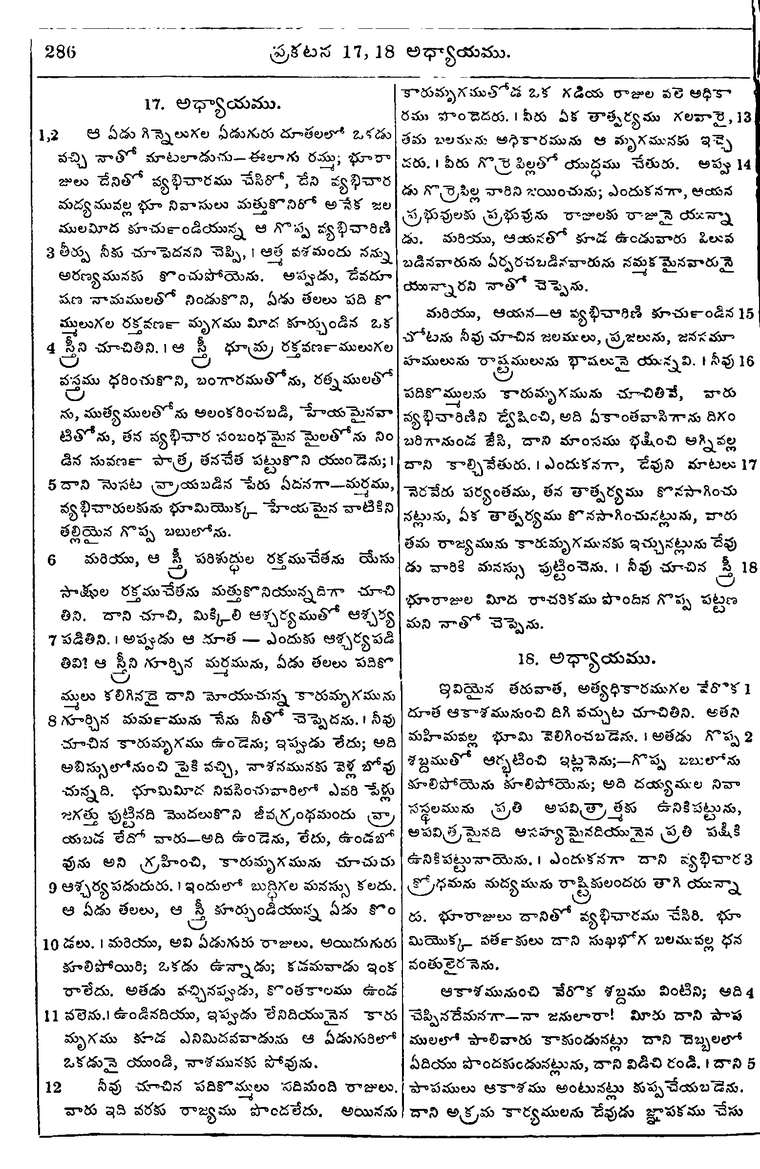 286 ప్రకటన 17, 18 అధ్యాయము.
17. అధ్యాయము.
1,2 ఆ ఏడు గిన్నెలుగల ఏడుగురు దూతలలో ఒకడు
వచ్చి నాతో మాటలాడుచు—ఈలాగు రమ్ము; భూరా
జులు దేనితో వ్యభిచారము చేసిరో, దేని వ్యభిచార
మద్యమువల్ల భూ నివాసులు మత్తుకొనిరో అనేక జల
ములమీద కూచుండియున్న ఆ గొప్ప వ్యభిచారిణి
3 తీర్పు నీకు చూపెదనని చెప్పి, । ఆత్మ వశమందు నన్ను
అరణ్యమునకు కొంచుపోయెను. అప్పుడు, దేవదూ
షణ నామములతో నిండుకొని, ఏడు తలలు పది కొ
మ్ములుగల రక్తవర్ణ మృగము మీద కూర్చుండిన ఒక
4 స్త్రీని చూచితిని. । ఆ స్త్రీ ధూమ్ర రక్తవర్ణములుగల
వస్త్రము ధరించుకొని, బంగారముతోను, రత్నములతో
ను, ముత్యములతోను అలంకరించబడి, హేయమైనవా
టితోను, తన వ్యభిచార సంబంధమైన మైలతోను నిం
డిన సువర్ణ పాత్ర తనచేత పట్టుకొని యుండెను; ।
5 దాని నొసట వ్రాయబడిన పేరు ఏదనగా—మర్మము,
వ్యభిచారులకును భూమియొక్క హేయమైన వాటికిని
తల్లియైన గొప్ప బబులోను.
6 మరియు, ఆ స్త్రీ పరిశుద్ధుల రక్తముచేతను యేసు
సాక్షుల రక్తముచేతను మత్తుకొనియున్నదిగా చూచి
తిని. దాని చూచి, మిక్కిలి ఆశ్చర్యముతో ఆశ్చర్య
7 పడితిని. । అప్పుడు ఆ దూత — ఎందుకు ఆశ్చర్యపడి
తివి! ఆ స్త్రీని గూర్చిన మర్మమును, ఏడు తలలు పదికొ
మ్ములు కలిగినదై దాని మోయుచున్న కారుమృగమును
8 గూర్చిన మర్మమును నేను నీతో చెప్పెదను. । నీవు
చూచిన కారుమృగము ఉండెను; ఇప్పుడు లేదు; అది
అబిస్సులోనుంచి పైకి వచ్చి, నాశనమునకు వెళ్ల బోవు
చున్నది. భూమిమీద నివసించువారిలో ఎవరి పేళ్లు
జగత్తు పుట్టినది మొదలుకొని జీవగ్రంథమందు వ్రా
యబడ లేదో వారు—అది ఉండెను, లేదు, ఉండబో
వును అని గ్రహించి, కారుమృగమును చూచుచు
9 ఆశ్చర్యపడుదురు. । ఇందులో బుద్ధిగల మనస్సు కలదు.
ఆ ఏడు తలలు, ఆ స్త్రీ కూర్చుండియున్న ఏడు కొం
10 డలు. । మరియు, అవి ఏడుగురు రాజులు. అయిదుగురు
కూలిపోయిరి; ఒకడు ఉన్నాడు; కడమవాడు ఇంక
రాలేదు. అతడు వచ్చినప్పుడు, కొంతకాలము ఉండ
11 వలెను. । ఉండినదియు, ఇప్పుడు లేనిదియునైన కారు
మృగము కూడ ఎనిమిదవవాడును ఆ ఏడుగురిలో
ఒకడునై యుండి, నాశమునకు పోవును.
12 నీవు చూచిన పదికొమ్మలు పదిమంది రాజులు.
వారు ఇది వరకు రాజ్యము పొందలేదు. అయినను
కారుమృగముతోడ ఒక గడియ రాజుల వలె అధికా
రము పొందెదరు. । వీరు ఏక తాత్పర్యము గలవారై, 13
తమ బలమును అధికారమును ఆ మృగమునకు ఇచ్చె
దరు. । వీరు గొర్రెపిల్లతో యుద్ధము చేతురు. అప్పు 14
డు గొర్రెపిల్ల వారిని జయించును; ఎందుకనగా, ఆయన
ప్రభువులకు ప్రభువును రాజులకు రాజునై యున్నా
డు. మరియు, ఆయనతో కూడ ఉండువారు పిలువ
బడినవారును ఏర్పరచబడినవారును నమ్మకమైనవారునై
యున్నారని నాతో చెప్పెను.
మరియు, ఆయన—ఆ వ్యభిచారిణి కూచుండిన 15
చోటను నీవు చూచిన జలములు, ప్రజలును, జనసమూ
హములును రాష్ట్రములును భాషలునై యున్నవి. । నీవు 16
పదికొమ్ములను కారుమృగమును చూచితివే, వారు
వ్యభిచారిణిని ద్వేషించి, అది ఏకాంతవాసిగాను దిగం
బరిగానుండ జేసి, దాని మాంసము భక్షించి అగ్నివల్ల
దాని కాల్చివేతురు. । ఎందుకనగా, దేవుని మాటలు 17
నెరవేరు పర్యంతము, తన తాత్పర్యము కొనసాగించు
నట్లును, ఏక తాత్పర్యము కొనసాగించునట్లును, వారు
తమ రాజ్యమును కారుమృగమునకు ఇచ్చునట్లును దేవు
డు వారికి మనస్సు పుట్టించెను. । నీవు చూచిన స్త్రీ 18
భూరాజుల మీద రాచరికము పొందిన గొప్ప పట్టణ
మని నాతో చెప్పెను.
18. అధ్యాయము.
ఇవియైన తరువాత, అత్యధికారముగల వేరొక 1
దూత ఆకాశమునుంచి దిగి వచ్చుట చూచితిని. అతని
మహిమవల్ల భూమి వెలిగించబడెను. । అతడు గొప్ప 2
శబ్దముతో ఆర్భటించి ఇట్లనెను;—గొప్ప బబులోను
కూలిపోయెను కూలిపోయెను; అది దయ్యముల నివా
సస్థలమును ప్రతి అపవిత్రాత్మకు ఉనికిపట్టును,
అపవిత్రమైనది ఆసహ్యమైనదియునైన ప్రతి పక్షికి
ఉనికిపట్టునాయెను. । ఎందుకనగా దాని వ్యభిచార 3
క్రోధమను మద్యమును రాష్ట్రికులందరు తాగి యున్నా
రు. భూరాజులు దానితో వ్యభిచారము చేసిరి. భూ
మియొక్క వర్తకులు దాని సుఖభోగ బలమువల్ల ధన
వంతులైరనెను.
ఆకాశమునుంచి వేరొక శబ్దము వింటిని; అది 4
చెప్పినదేమనగా—నా జనులారా! మీరు దాని పాప
ములలో పాలివారు కాకుండునట్లు దాని దెబ్బలలో
ఏదియు పొందకుండునట్లును, దాని విడిచి రండి. । దాని 5
పాపములు ఆకాశము అంటునట్లు కుప్పచేయబడెను.
దాని అక్రమ కార్యములను దేవుడు జ్ఞాపకము చేసు